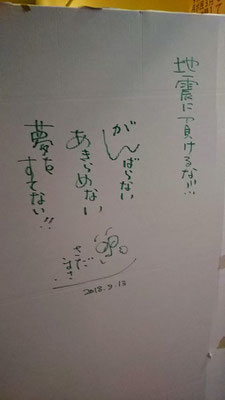 地震に負けるな!!!
がんばらない
あきらめない
夢を
すてない!!
さだ
まさし
2018.9.13